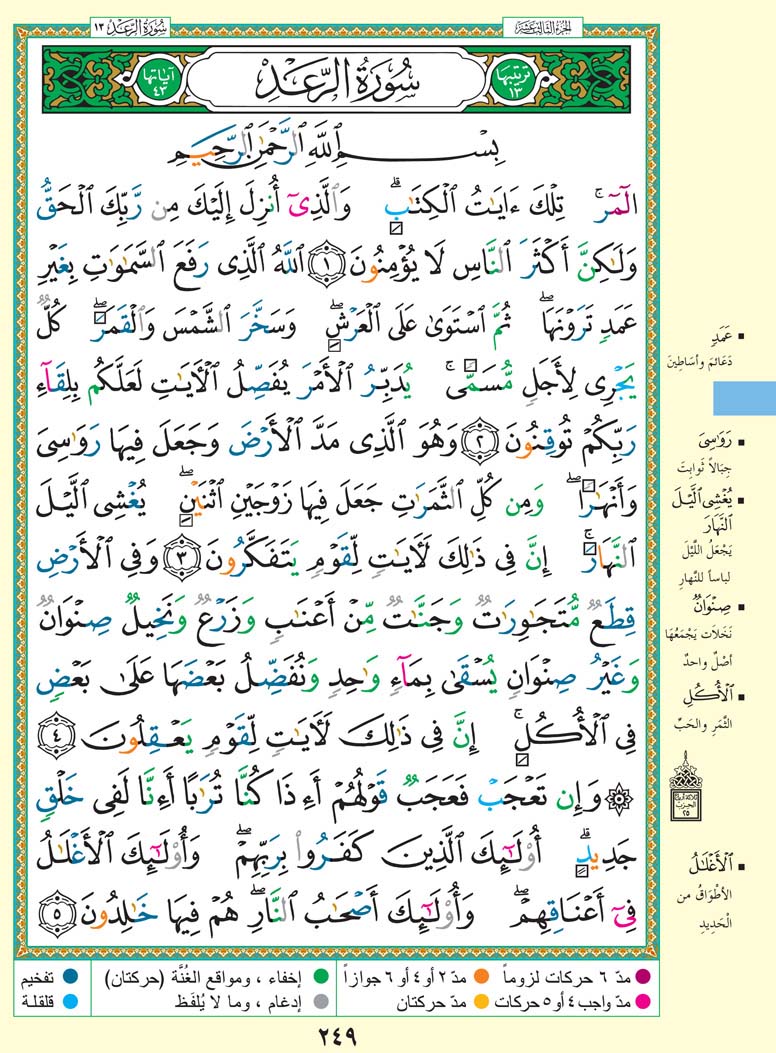 سُورَةُ الرَّعْدِ ١٣
الجُزءُ الثَّالِثَ عَشَرَ
تَرتيبُهَا ١٣
سُورَةُ الرَّعْدِ
آيَاتُهَا ٤٣
بِسْمِ ٱللَّهِ ٱلرَّحْمَٰنِ ٱلرَّحِيمِ
الٓمٓر ۚ تِلْكَ ءَايَٰتُ ٱلْكِتَٰبِ ۗ وَٱلَّذِىٓ أُنزِلَ إِلَيْكَ مِن رَّبِّكَ ٱلْحَقُّ
وَلَٰكِنَّ أَكْثَرَ ٱلنَّاسِ لَا يُؤْمِنُونَ ١ ٱللَّهُ ٱلَّذِى رَفَعَ ٱلسَّمَٰوَٰتِ بِغَيْرِ
عَمَدٍ تَرَوْنَهَا ۖ ثُمَّ ٱسْتَوَىٰ عَلَى ٱلْعَرْشِ ۖ وَسَخَّرَ ٱلشَّمْسَ وَٱلْقَمَرَ ۖ كُلٌّ
يَجْرِى لِأَجَلٍ مُّسَمًّى ۚ يُدَبِّرُ ٱلْأَمْرَ يُفَصِّلُ ٱلْءَايَٰتِ لَعَلَّكُم بِلِقَآءِ
رَبِّكُمْ تُوقِنُونَ ٢ وَهُوَ ٱلَّذِى مَدَّ ٱلْأَرْضَ وَجَعَلَ فِيهَا رَوَٰسِىَ
وَأَنْهَٰرًا ۖ وَمِن كُلِّ ٱلثَّمَرَٰتِ جَعَلَ فِيهَا زَوْجَيْنِ ٱثْنَيْنِ ۖ يُغْشِى ٱلَّيْلَ
ٱلنَّهَارَ ۚ إِنَّ فِى ذَٰلِكَ لَءَايَٰتٍ لِّقَوْمٍ يَتَفَكَّرُونَ ٣ وَفِى ٱلْأَرْضِ
قِطَعٌ مُّتَجَٰوِرَٰتٌ وَجَنَّٰتٌ مِّنْ أَعْنَٰبٍ وَزَرْعٌ وَنَخِيلٌ صِنْوَانٌ
وَغَيْرُ صِنْوَانٍ يُسْقَىٰ بِمَآءٍ وَٰحِدٍ وَنُفَضِّلُ بَعْضَهَا عَلَىٰ بَعْضٍ
فِى ٱلْأُكُلِ ۚ إِنَّ فِى ذَٰلِكَ لَءَايَٰتٍ لِّقَوْمٍ يَعْقِلُونَ ٤
۞ وَإِن تَعْجَبْ فَعَجَبٌ قَوْلُهُمْ أَءِذَا كُنَّا تُرَٰبًا أَءِنَّا لَفِى خَلْقٍ
جَدِيدٍ ۗ أُو۟لَٰٓئِكَ ٱلَّذِينَ كَفَرُوا۟ بِرَبِّهِمْ ۖ وَأُو۟لَٰٓئِكَ ٱلْأَغْلَٰلُ
فِىٓ أَعْنَاقِهِمْ ۖ وَأُو۟لَٰٓئِكَ أَصْحَٰبُ ٱلنَّارِ ۖ هُمْ فِيهَا خَٰلِدُونَ ٥
عَمَدٍ
دَعَائِمَ وأسَاطِينَ
رَوَٰسِىَ
جِبَالاً ثَوابِتَ
يُغْشِى ٱلَّيْلَ
ٱلنَّهَارَ
يَجْعَلُ اللَّيْلَ
لباساً للنَّهارِ
صِنْوَانٌ
نَخَلَات يَجْمَعُهَا
أصْلٌ واحدٌ
ٱلْأُكُلِ
الثَّمَرِ والحَبِّ
ثَلاثَةُ أَرْبَاعِ
الحِزْبِ
٢٥
ٱلْأَغْلَٰلُ
الأطْوَاقُ من
الْحَدِيدِ
مدّ ٦ حركات لزوماً
مدّ ٢ أو ٤ أو ٦ جوازاً
إخفاء ، ومواقع الغُنَّة (حركتان)
تفخيم
مدّ واجب ٤ أو ٥ حركات
مدّ حركتان
إدغام ، وما لا يُلفَظ
قلقلة
٢٤٩